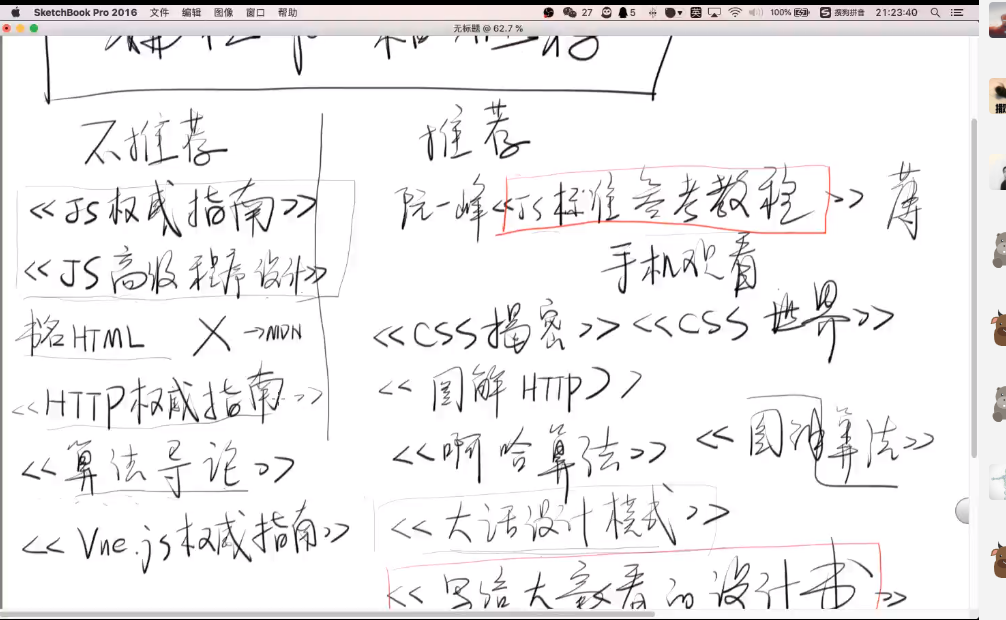 SketchBook Pro 2016 文件 编辑 图像 窗口 帮助 27 5 英 100% 搜狗拼音 21:23:40
无标题 @ 62.7 %
不推荐
《JS权威指南》
《JS高级程序设计》
书名HTML X →MDN
《HTTP权威指南》
《算法导论》
《Vue.js权威指南》
推荐
阮一峰《JS标准参考教程》 薄
手机观看
《CSS揭密》《CSS世界》
《图解HTTP》
《啊哈算法》 《图解算法》
《大话设计模式》
《写给大家看的设计书》